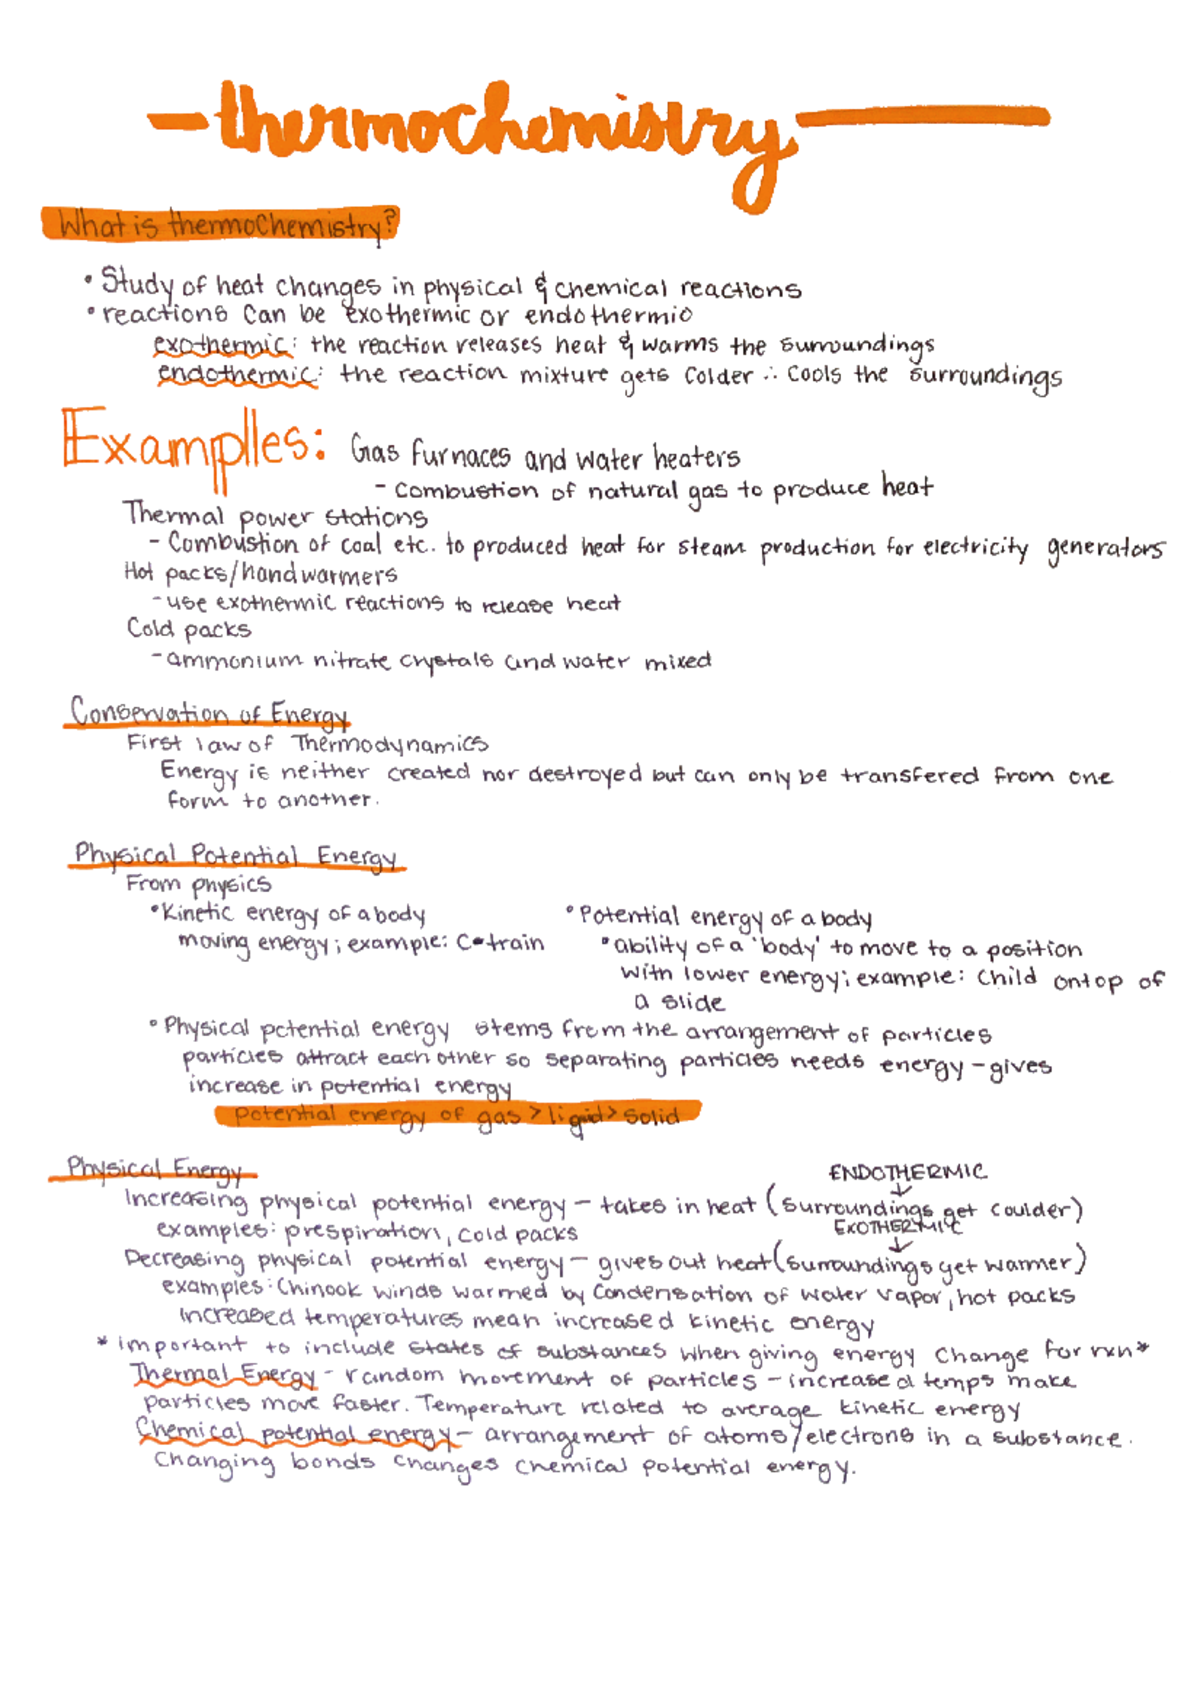 thermochemistry
What is thermochemistry?
• Study of heat changes in physical & chemical reactions
• reactions can be exothermic or endothermic
exothermic: the reaction releases heat & warms the surroundings
endothermic: the reaction mixture gets colder ∴ cools the surroundings
Examplles: Gas furnaces and water heaters
- combustion of natural gas to produce heat
Thermal power stations
- Combustion of coal etc. to produced heat for steam production for electricity generators
Hot packs/handwarmers
- use exothermic reactions to release heat
Cold packs
- ammonium nitrate crystals and water mixed
Conservation of Energy
First law of Thermodynamics
Energy is neither created nor destroyed but can only be transfered from one
form to another.
Physical Potential Energy
From physics
• Kinetic energy of a body
moving energy; example: C-train
• Potential energy of a body
• ability of a 'body' to move to a position
with lower energy; example: child ontop of
a slide
• Physical potential energy stems from the arrangement of particles
particles attract each other so separating particles needs energy - gives
increase in potential energy
potential energy of gas > liqid > solid
Physical Energy
ENDOTHERMIC
Increasing physical potential energy - takes in heat (surroundings get coulder)
examples: prespiration, cold packs
EXOTHERMIC
Decreasing physical potential energy - gives out heat (surroundings get warmer)
examples: Chinook winds warmed by condensation of water vapor, hot packs
increased temperatures mean increased kinetic energy
* important to include states of substances when giving energy change for rxn*
Thermal Energy - random movement of particles - increased temps make
particles move faster. Temperature related to average kinetic energy
Chemical potential energy - arrangement of atoms/electrons in a substance.
Changing bonds changes chemical potential energy.